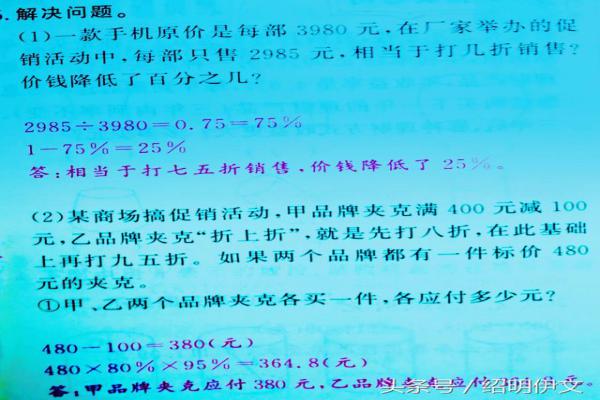 .解决问题。
(1)一款手机原价是每部 3980 元,在厂家举办的促
销活动中,每部只售 2985 元,相当于打几折销售?
价钱降低了百分之几?
2985÷3980=0.75=75%
1-75%=25%
答:相当于打七五折销售,价钱降低了 25%。
(2)某商场搞促销活动,甲品牌夹克满 400 元减 100
元,乙品牌夹克“折上折”,就是先打八折,在此基础
上再打九五折。如果两个品牌都有一件标价 480
元的夹克。
①甲、乙两个品牌夹克各买一件,各应付多少元?
480-100=380(元)
480×80%×95%=364.8(元)
答:甲品牌夹克应付 380 元,乙品牌
头条号/绍明伊文